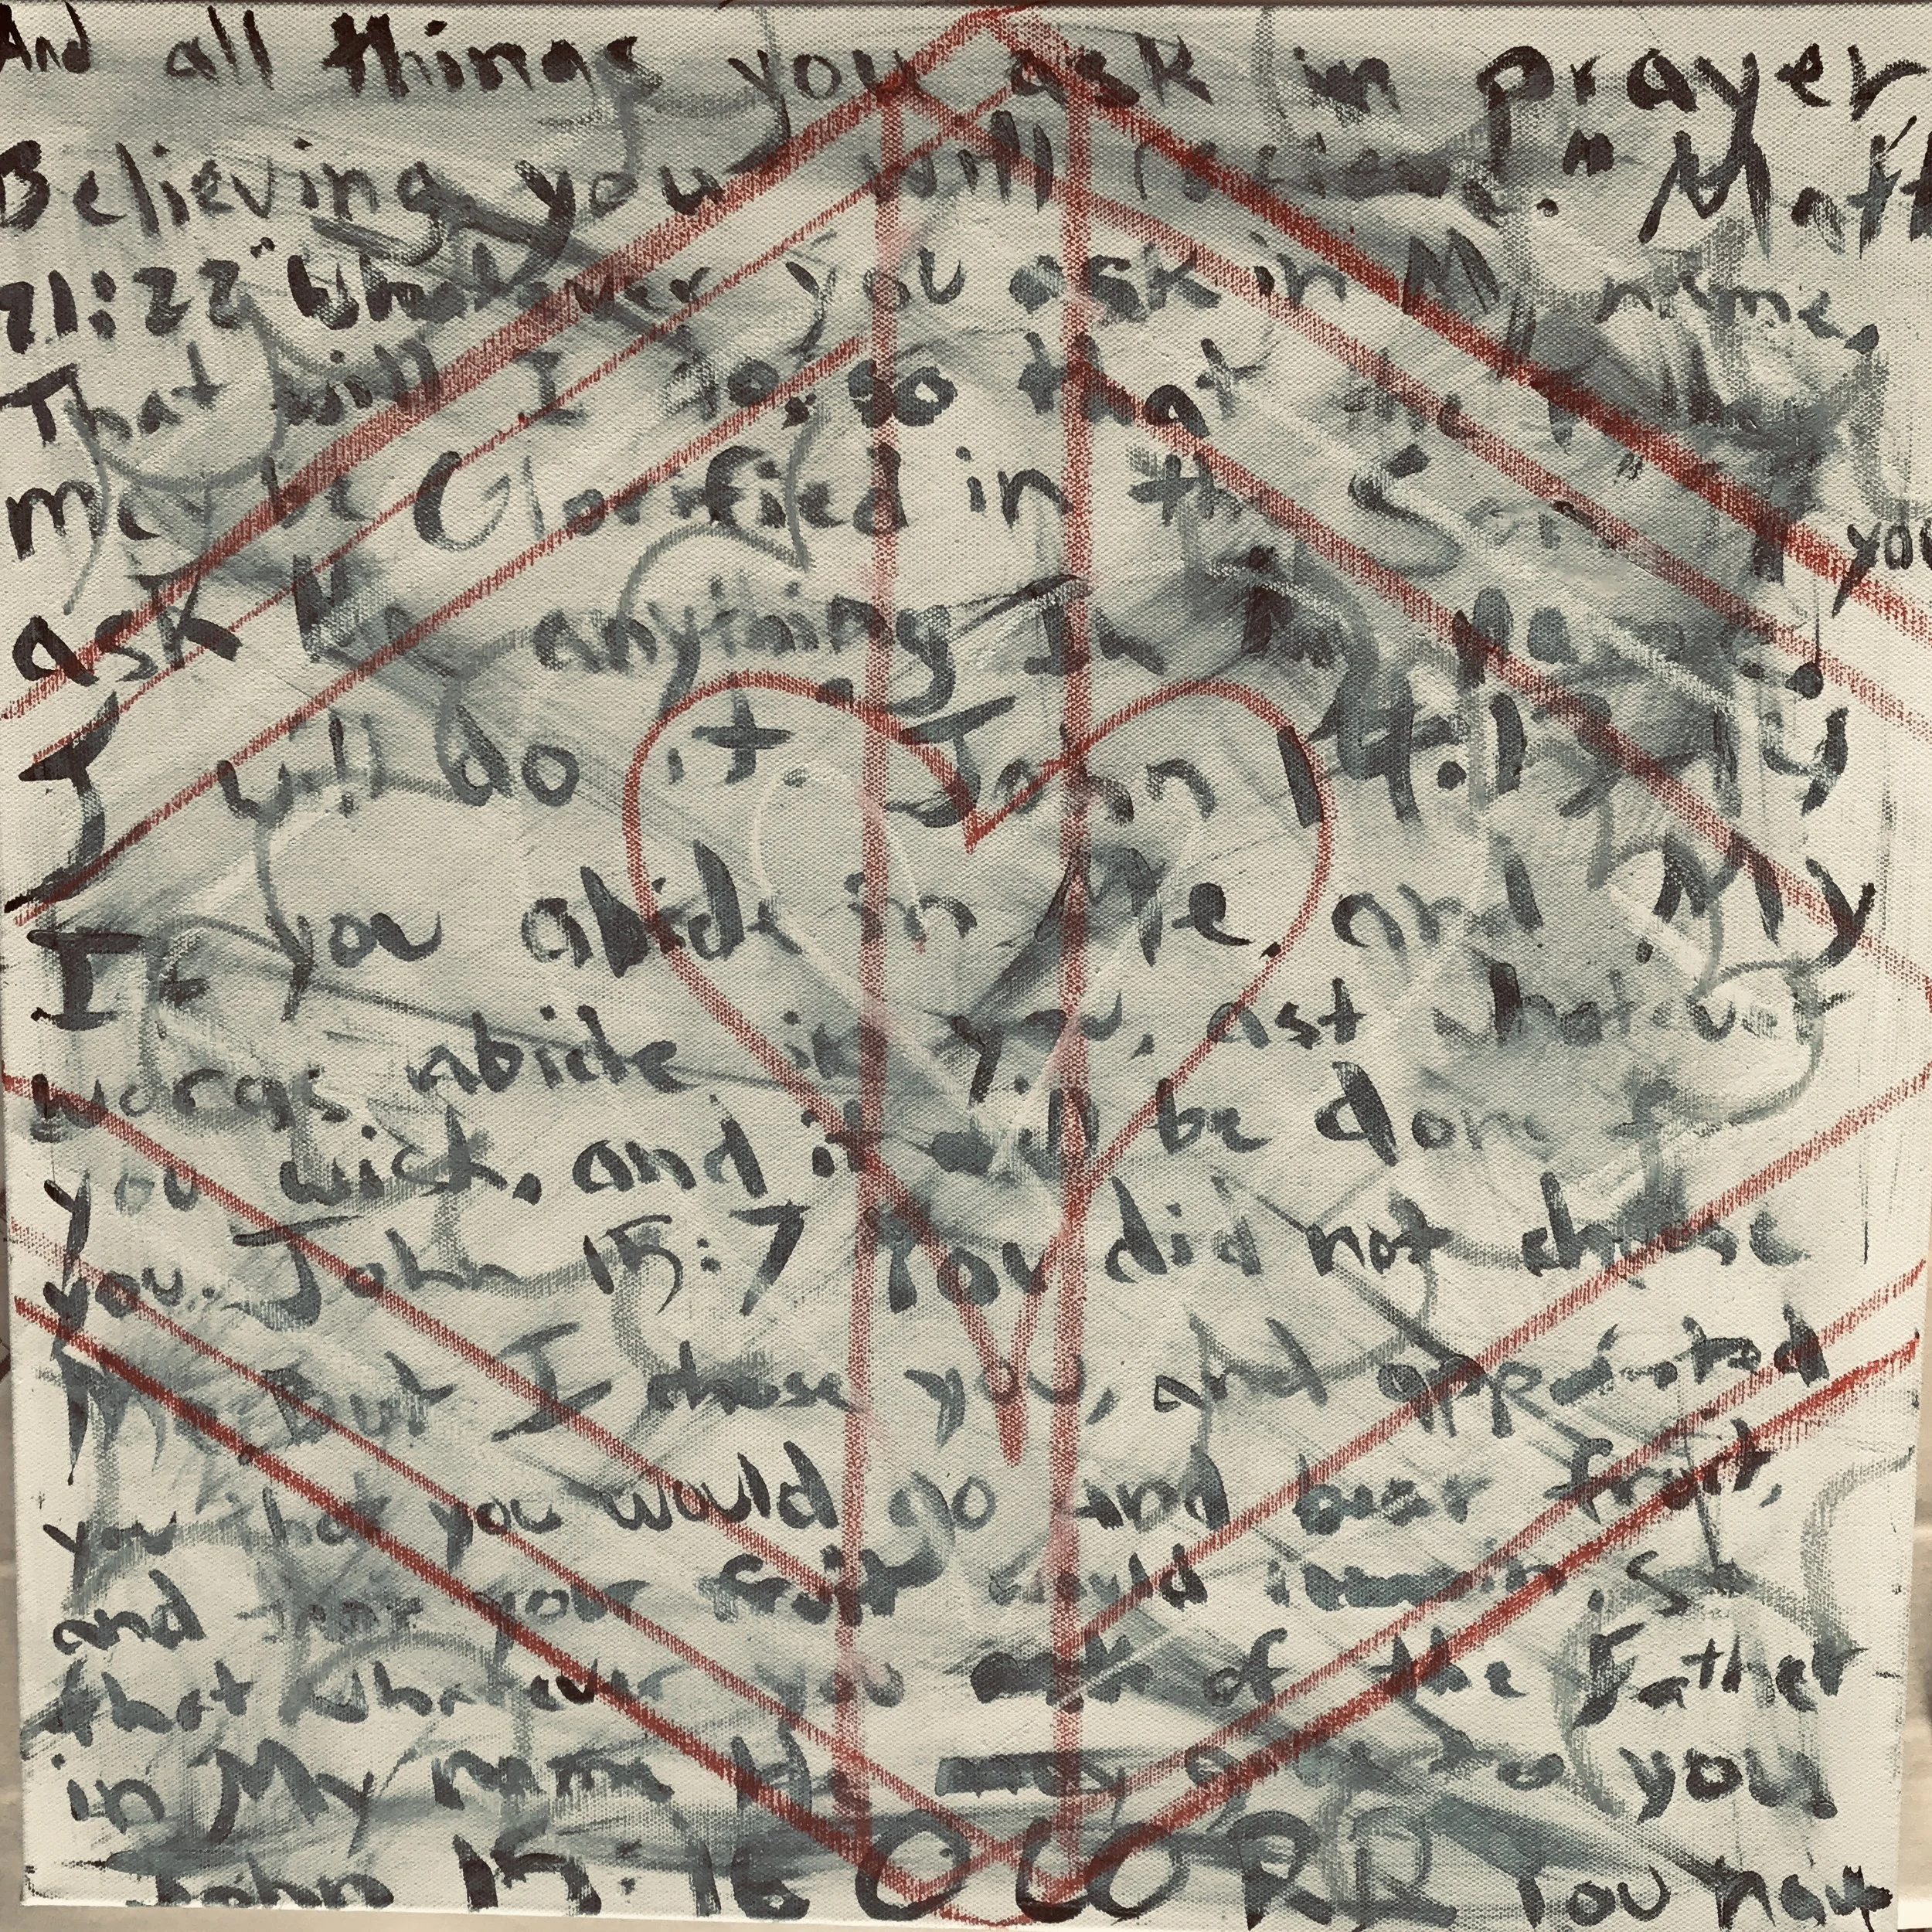 And all things you ask in prayer
Believing, you will receive." Matt
21:22 "Whatever you ask in My name,
That will I do, so that the
may be Glorified in the Son If you
ask Me anything In my Name,
I will do it. John 14:13
If you abide in Me, and My
words abide in you, ask whatever
you wish, and it will be done for
you. John 15:7 You did not choose
Me But I chose you, and appointed
you that you would go and bear fruit,
and your fruit would remain, so
that whatever you ask of the Father
in My name He may give to you
John 15:16 O LORD You have